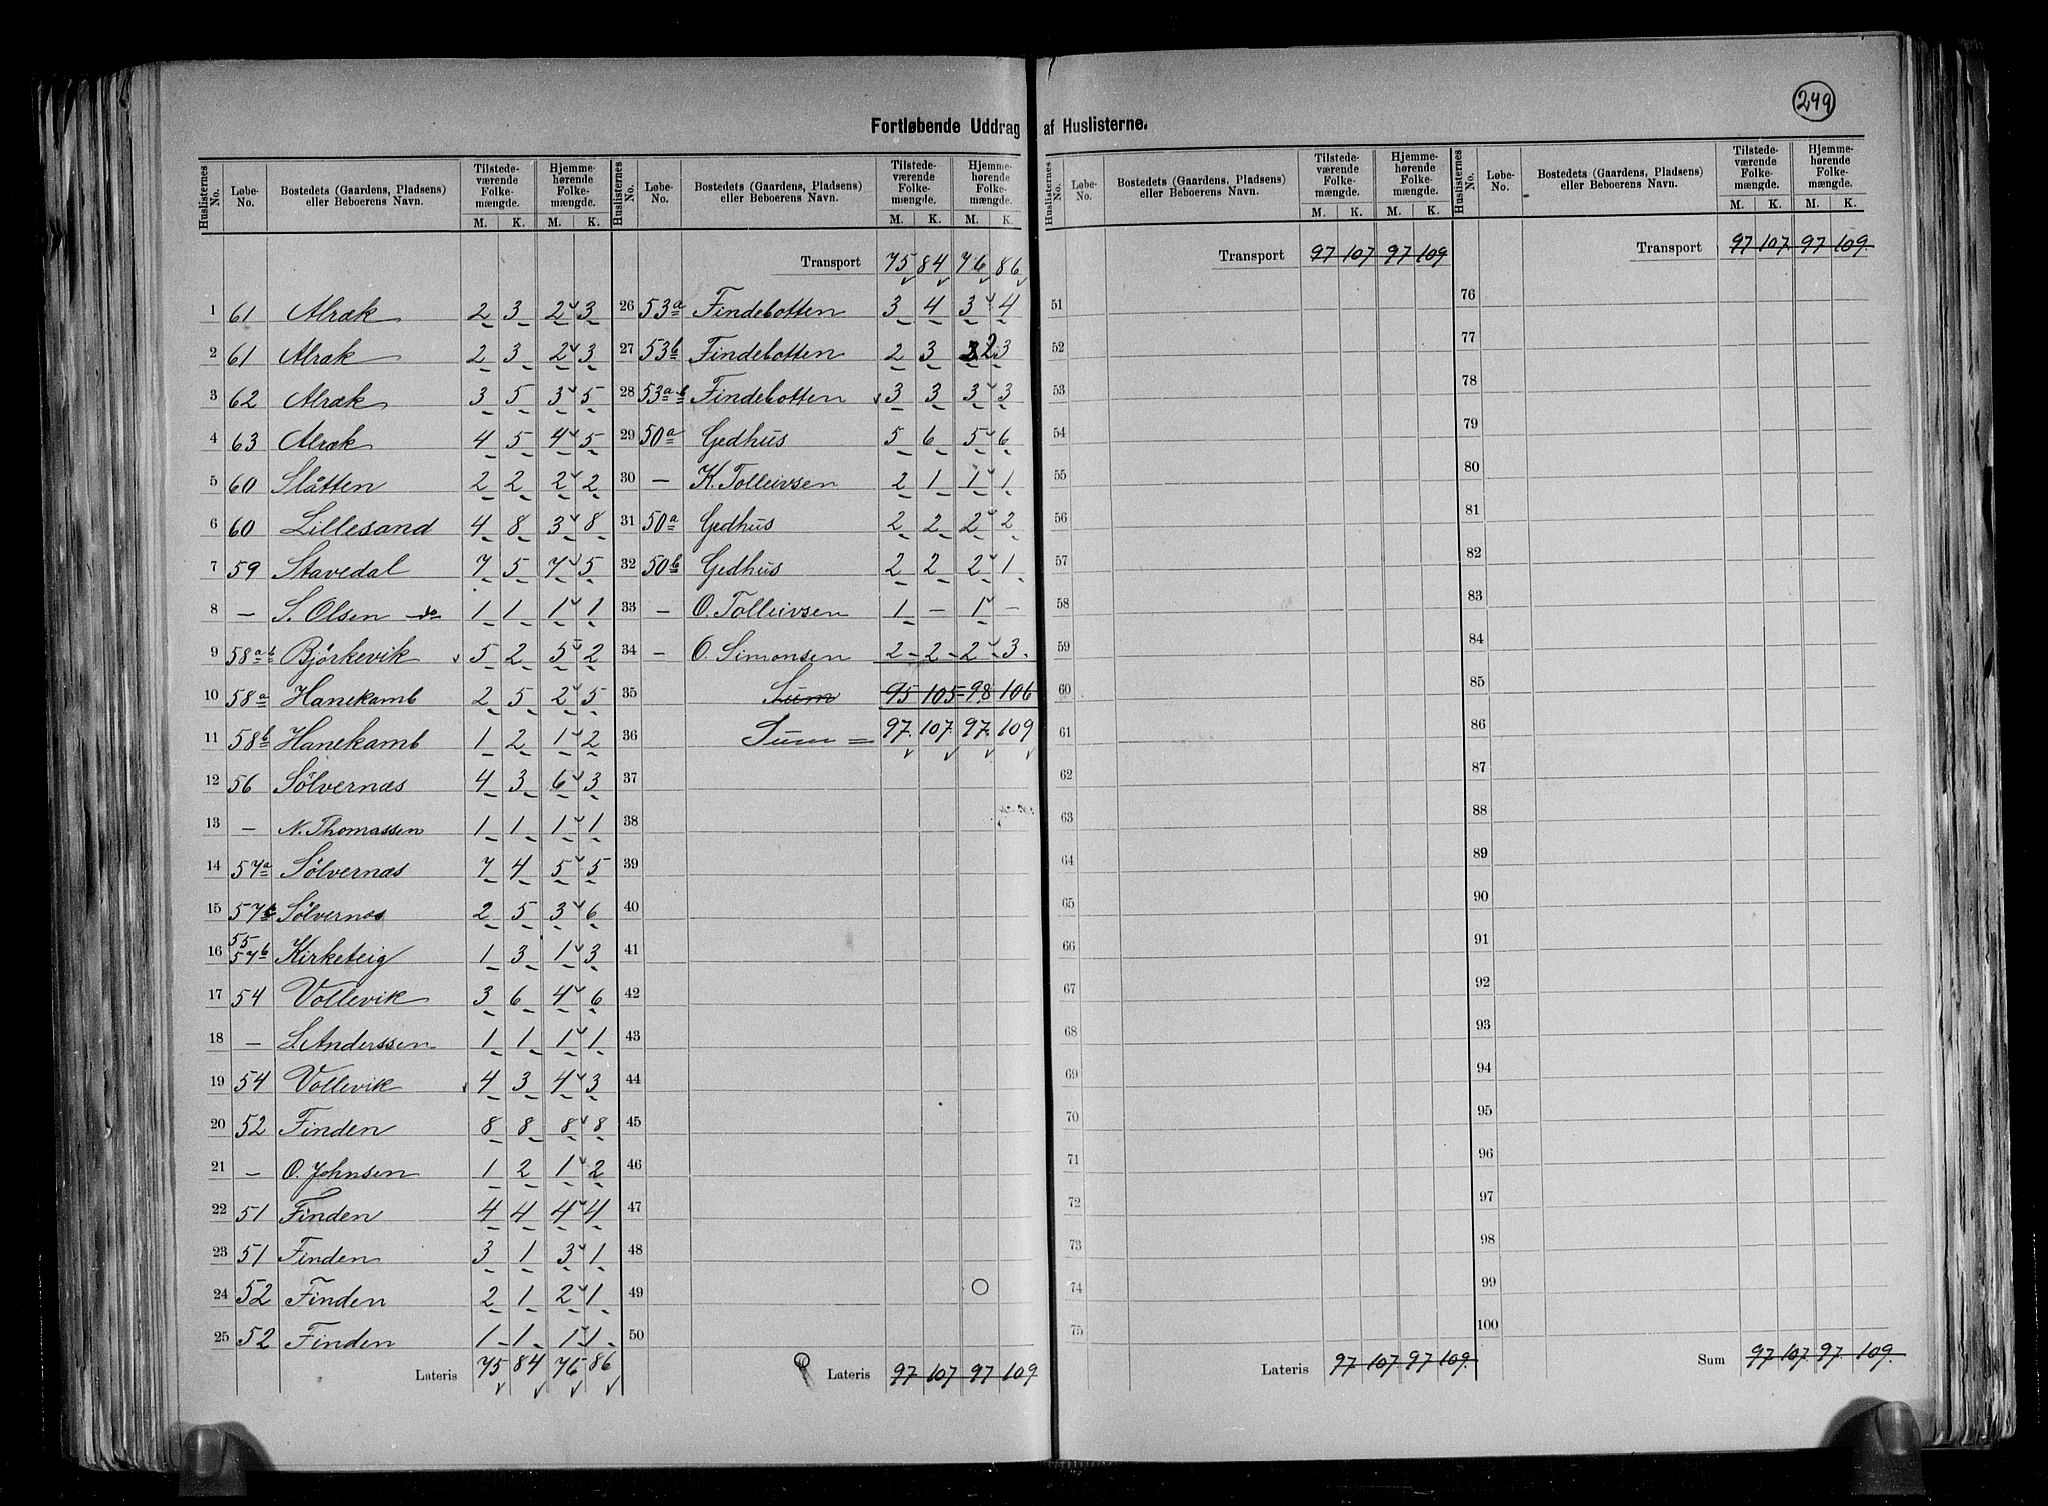 249
Fortløbende Uddrag af Huslisterne.
Huslisternes No. | Løbe-No. | Bostedets (Gaardens, Pladsens) eller Beboerens Navn. | Tilstedeværende Folkemængde. M. K. | Hjemmehørende Folkemængde. M. K.
1 61 Alræk 2 3 2 3
2 61 Alræk 2 3 2 3
3 62 Alræk 3 5 3 5
4 63 Alræk 4 5 4 5
5 60 Slåtten 2 2 2 2
6 60 Lillesand 4 8 3 8
7 59 Stavedal 7 5 7 5
8 — S. Olsen do 1 1 1 1
9 58a b Björkevik 5 2 5 2
10 58a Hanekamb 2 5 2 5
11 58b Hanekamb 1 2 1 2
12 56 Sölvernæs 4 3 6 3
13 — N. Thomassen 1 1 1 1
14 57a Sölvernæs 7 4 5 5
15 57b Sölvernæs 2 5 3 6
16 55 57b Kirketeig 1 3 1 3
17 54 Vollevik 3 6 4 6
18 — L. Anderssen 1 1 1 1
19 54 Vollevik 4 3 4 3
20 52 Finden 8 8 8 8
21 — O. Johnsen 1 2 1 2
22 51 Finden 4 4 4 4
23 51 Finden 3 1 3 1
24 52 Finden 2 1 2 1
25 52 Finden 1 1 1 1
Lateris 75 84 76 86
Huslisternes No. | Løbe-No. | Bostedets (Gaardens, Pladsens) eller Beboerens Navn. | Tilstedeværende Folkemængde. M. K. | Hjemmehørende Folkemængde. M. K.
Transport 75 84 76 86
26 53a Findebotten 3 4 3 4
27 53b Findebotten 2 3 2 3
28 53a b Findebotten 3 3 3 3
29 50a Gedhus 5 6 5 6
30 — K. Tolleivsen 2 1 1 1
31 50a Gedhus 2 2 2 2
32 50b Gedhus 2 2 2 1
33 — O. Tolleivsen 1 — 1 —
34 — O. Simonsen 2 2 2 3
35 Sum 95 105 98 106
36 Sum = 97 107 97 109
37
38
39
40
41
42
43
44
45
46
47
48
49
50
Lateris 97 107 97 109
Huslisternes No. | Løbe-No. | Bostedets (Gaardens, Pladsens) eller Beboerens Navn. | Tilstedeværende Folkemængde. M. K. | Hjemmehørende Folkemængde. M. K.
Transport 97 107 97 109
51
52
53
54
55
56
57
58
59
60
61
62
63
64
65
66
67
68
69
70
71
72
73
74
75
Lateris 97 107 97 109.
Huslisternes No. | Løbe-No. | Bostedets (Gaardens, Pladsens) eller Beboerens Navn. | Tilstedeværende Folkemængde. M. K. | Hjemmehørende Folkemængde. M. K.
Transport 97 107. 97 109.
76
77
78
79
80
81
82
83
84
85
86
87
88
89
90
91
92
93
94
95
96
97
98
99
100
Sum 97 107. 97. 109.